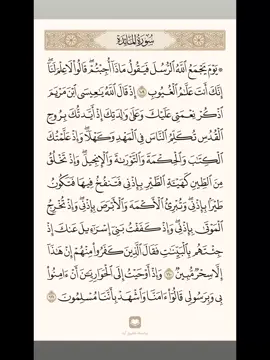 سُورَةُ المَائـِدَةِ
۞ يَوۡمَ يَجۡمَعُ ٱللَّهُ ٱلرُّسُلَ فَيَقُولُ مَاذَآ أُجِبۡتُمۡۖ قَالُواْ لَا عِلۡمَ لَنَآۖ
إِنَّكَ أَنتَ عَلَّٰمُ ٱلۡغُيُوبِ ١٠٩ إِذۡ قَالَ ٱللَّهُ يَٰعِيسَى ٱبۡنَ مَرۡيَمَ
ٱذۡكُرۡ نِعۡمَتِي عَلَيۡكَ وَعَلَىٰ وَٰلِدَتِكَ إِذۡ أَيَّدتُّكَ بِرُوحِ
ٱلۡقُدُسِ تُكَلِّمُ ٱلنَّاسَ فِي ٱلۡمَهۡدِ وَكَهۡلٗاۖ وَإِذۡ عَلَّمۡتُكَ
ٱلۡكِتَٰبَ وَٱلۡحِكۡمَةَ وَٱلتَّوۡرَىٰةَ وَٱلۡإِنجِيلَۖ وَإِذۡ تَخۡلُقُ
مِنَ ٱلطِّينِ كَهَيۡـَٔةِ ٱلطَّيۡرِ بِإِذۡنِي فَتَنفُخُ فِيهَا فَتَكُونُ
طَيۡرَۢا بِإِذۡنِيۖ وَتُبۡرِئُ ٱلۡأَكۡمَهَ وَٱلۡأَبۡرَصَ بِإِذۡنِيۖ وَإِذۡ تُخۡرِجُ
ٱلۡمَوۡتَىٰ بِإِذۡنِيۖ وَإِذۡ كَفَفۡتُ بَنِيٓ إِسۡرَٰٓءِيلَ عَنكَ إِذۡ
جِئۡتَهُم بِٱلۡبَيِّنَٰتِ فَقَالَ ٱلَّذِينَ كَفَرُواْ مِنۡهُمۡ إِنۡ هَٰذَآ
إِلَّا سِحۡرٞ مُّبِينٞ ١١٠ وَإِذۡ أَوۡحَيۡتُ إِلَى ٱلۡحَوَارِيِّـۧنَ أَنۡ ءَامِنُواْ
بِي وَبِرَسُولِي قَالُوٓاْ ءَامَنَّا وَٱشۡهَدۡ بِأَنَّنَا مُسۡلِمُونَ ١١١